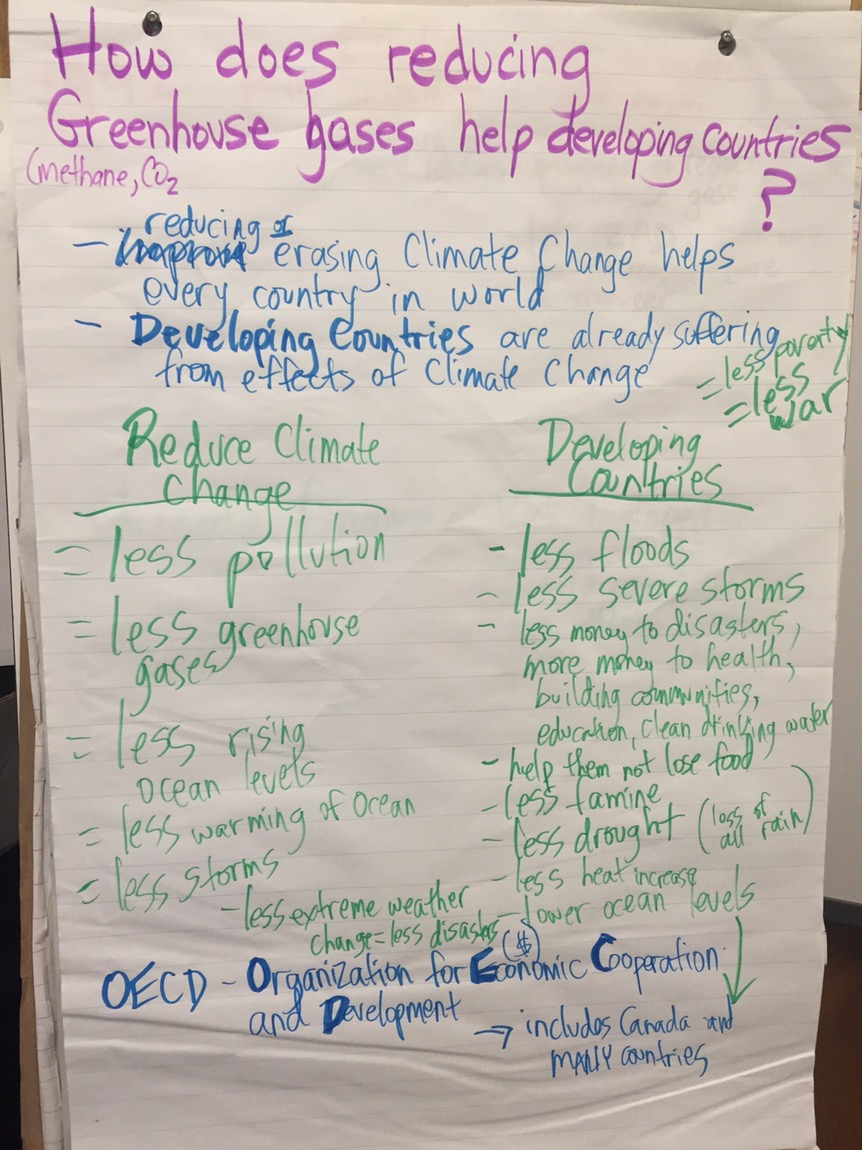 How does reducing
Greenhouse gases help developing countries
(methane, CO2
?
reducing or
erasing Climate Change helps
every country in world
- Developing Countries are already suffering
from effects of Climate Change
= less poverty
= less
war
Reduce Climate
Change
= less pollution
= less greenhouse
gases
= less rising
ocean levels
= less warming of ocean
= less storms
- less extreme weather
change = less disasters
Developing
Countries
- less floods
- less severe storms
- less money to disasters,
more money to health,
building communities,
education, clean drinking water
- help them not lose food
- less famine
- less drought (loss of
all rain)
- less heat increase
- lower ocean levels
($)
OECD - Organization for Economic Cooperation
and Development
→ includes Canada and
MANY countries